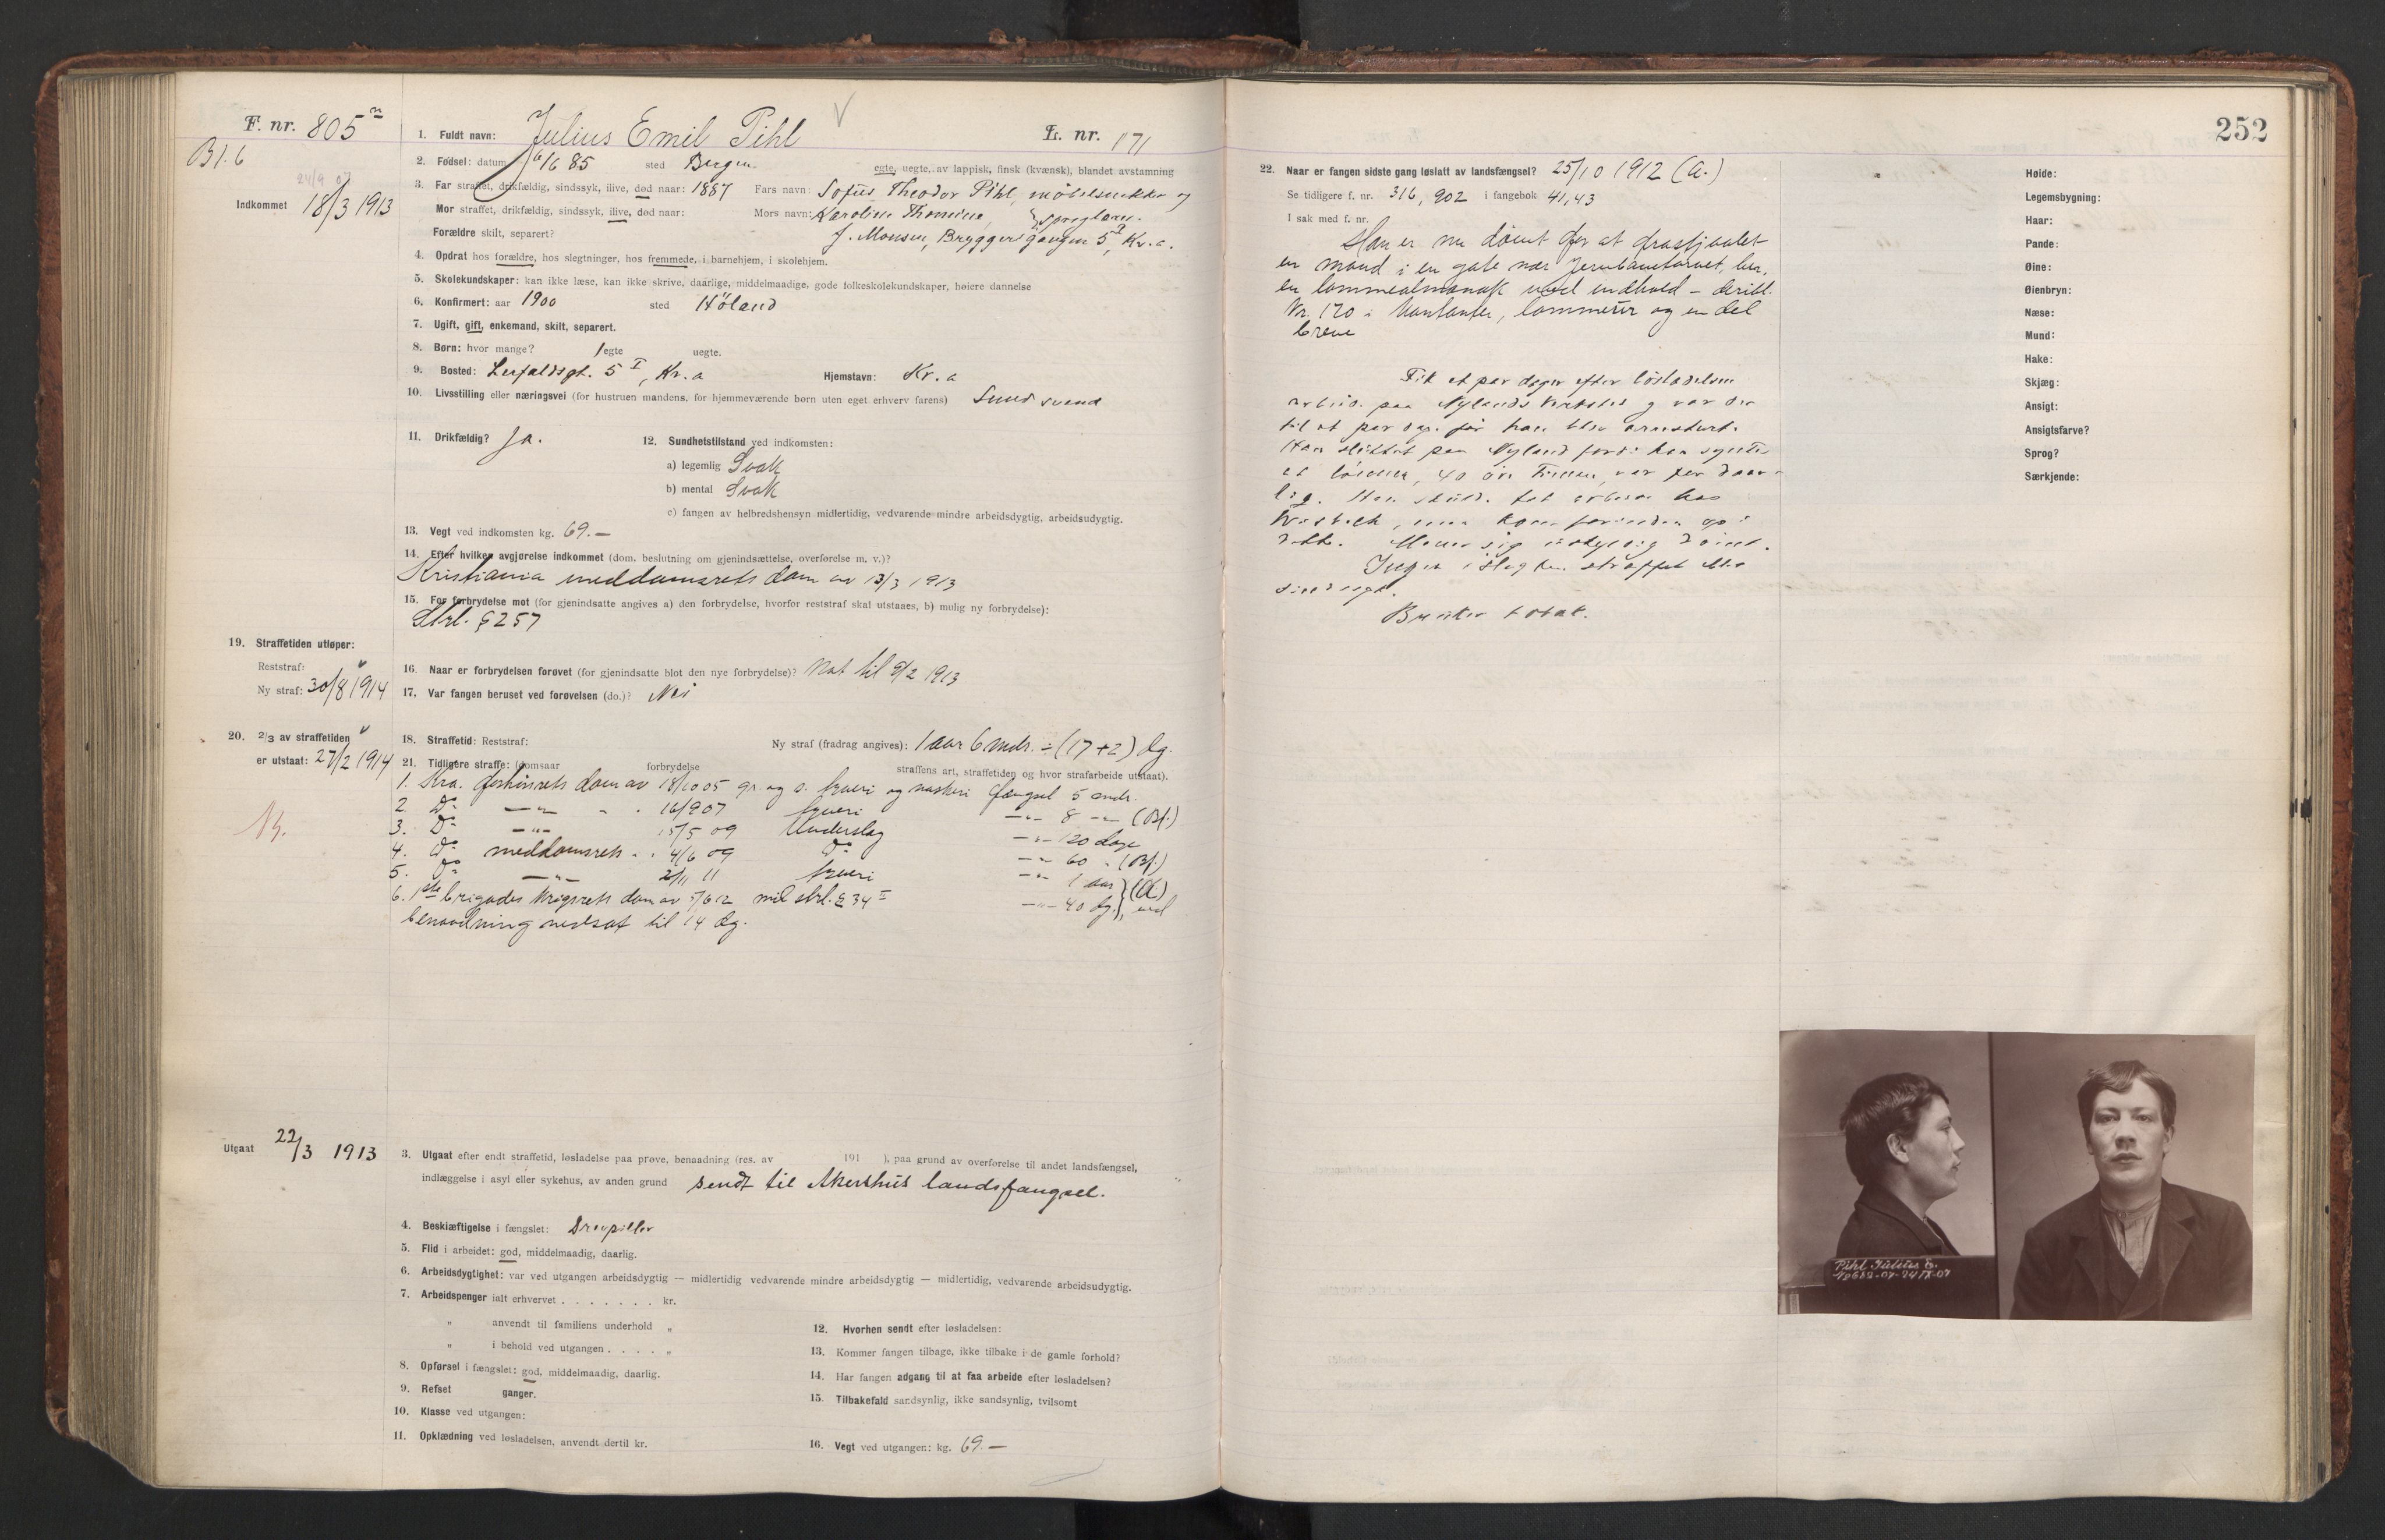 F. nr. 805
Bl. 6
24/9 07
Indkommet 18/3 1913
1. Fuldt navn: Julius Emil Pihl
L. nr. 171
2. Fødsel: datum 16/6 85 sted Bergen
egte, uegte, av lappisk, finsk (kvænsk), blandet avstamning
3. Far straffet, drikfældig, sindssyk, ilive, død naar: 1887 Fars navn: Sofus Theodor Pihl, møbelsnekker og
Mor straffet, drikfældig, sindssyk, ilive, død naar: Mors navn: Karoline Thomine,
Forældre skilt, separert? J. Monsen, Bryggergangen 5, Kr.a.
4. Opdrat hos forældre, hos slegtninger, hos fremmede, i barnehjem, i skolehjem.
5. Skolekundskaper: kan ikke læse, kan ikke skrive, daarlige, middelmaadige, gode folkeskolekundskaper, høiere dannelse
6. Konfirmert: aar 1900 sted Høland
7. Ugift, gift, enkemand, skilt, separert.
8. Børn: hvor mange? 1 egte uegte.
9. Bosted: Lerfaldsgt. 5 I, Kr.a Hjemstavn: Kr.a
10. Livsstilling eller næringsvei (for hustruen mandens, for hjemmeværende børn uten eget erhverv farens) Smedsvend
11. Drikfældig? Ja.
12. Sundhetstilstand ved indkomsten:
a) legemlig Svak
b) mental Svak
c) fangen av helbredshensyn midlertidig, vedvarende mindre arbeidsdygtig, arbeidsudygtig.
13. Vegt ved indkomsten kg. 69.—
14. Efter hvilken avgjørelse indkommet (dom, beslutning om gjenindsættelse, overførelse m. v.)?
Kristiania meddomsrets dom av 13/3 1913
15. For forbrydelse mot (for gjenindsatte angives a) den forbrydelse, hvorfor reststraf skal utstaaes, b) mulig ny forbrydelse):
Strl. § 257
19. Straffetiden utløper:
Reststraf:
Ny straf: 30/8 1914
16. Naar er forbrydelsen forøvet (for gjenindsatte blot den nye forbrydelse)? Nat til 9/2 1913
17. Var fangen beruset ved forøvelsen (do.)? Nei
20. 2/3 av straffetiden
er utstaat: 27/2 1914
18. Straffetid: Reststraf: Ny straf (fradrag angives): 1 aar 6 mdr. ÷ (17+2) dg.
21. Tidligere straffe: (domsaar forbrydelse straffens art, straffetiden og hvor strafarbeide utstaat).
1. Kra. forhørsrets dom av 18/10 05 gr. og s. tyveri og naskeri fængsel 5 mdr.
2. Do —"— " . 16/9 07 tyveri —"— 8 —"— (Bf.)
3. Do —"— 15/5 09 Underslag —"— 120 dage
4. Do meddomsrets " . 4/6 09 Do —"— 60 " (Bf.)
5. Do —"— 2/11 11 tyveri —"— 1 aar } (A)
6. 1ste brigades krigsrets dom av 5/6 12 mil strl. § 34 —"— 40 dg. }, ved
benaadning nedsat til 14 dg.
Utgaat 22/3 1913
3. Utgaat efter endt straffetid, løsladelse paa prøve, benaadning (res. av 191 ), paa grund av overførelse til andet landsfængsel,
indlæggelse i asyl eller sykehus, av anden grund sendt til Akershus landsfængsel.
4. Beskjæftigelse i fængslet: Drevpiller
5. Flid i arbeidet: god, middelmaadig, daarlig.
6. Arbeidsdygtighet: var ved utgangen arbeidsdygtig — midlertidig vedvarende mindre arbeidsdygtig — midlertidig, vedvarende arbeidsudygtig.
7. Arbeidspenger ialt erhvervet . . . . . . . kr.
" anvendt til familiens underhold "
" i behold ved utgangen . . . . "
8. Opførsel i fængslet: god, middelmaadig, daarlig.
9. Refset ganger.
10. Klasse ved utgangen:
11. Opklædning ved løsladelsen, anvendt dertil kr.
12. Hvorhen sendt efter løsladelsen:
13. Kommer fangen tilbage, ikke tilbake i de gamle forhold?
14. Har fangen adgang til at faa arbeide efter løsladelsen?
15. Tilbakefald sandsynlig, ikke sandsynlig, tvilsomt
16. Vegt ved utgangen: kg. 69.—
252
22. Naar er fangen sidste gang løslatt av landsfængsel? 25/10 1912 (A.)
Se tidligere f. nr. 316, 902 i fangebok 41, 43
I sak med f. nr.
Han er nu dømt for at frastjaalet
en mand i en gate nær Jernbanetorvet, her,
en lommealmanak med indhold – deribl.
Kr. 170 i kontanter, lommeur og en del
breve
Fik et par dager efter løsladelsen
arbeid paa Nylands Verksted og var der
til et par dag. før han blev arrestert.
Han sluttet paa Nyland fordi han syntes
at lønnen, 40 øre timen, var for daar-
lig. Han skulde tat arbeide hos
, men kom forinden op i
dette. Mener sig uskyldig dømt.
Ingen i slegten straffet eller
sindssyk.
Bruker tobak.
Høide:
Legemsbygning:
Haar:
Pande:
Øine:
Øienbryn:
Næse:
Mund:
Hake:
Skjæg:
Ansigt:
Ansigtsfarve?
Sprog?
Særkjende:
Pihl Julius E.
No 682-07-24/IX-07